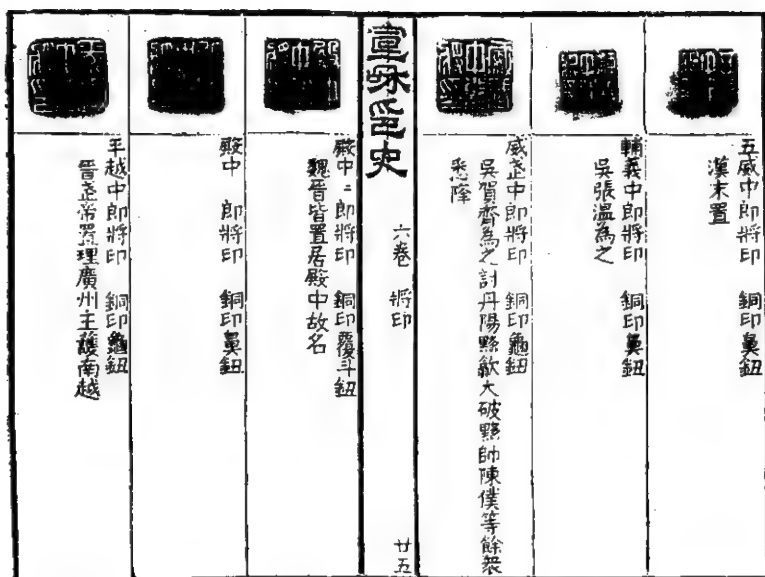 五威中郎將印 銅印鼻鈕
漢末置
輔義中郎將印 銅印鼻鈕
吳張溫為之
威武中郎將印 銅印龜鈕
吳賀齊為之討丹陽黟歙大破黟帥陳僕等餘衆
悉降
宣龢印史
六卷 將印
廿五
殿中〻郎將印 銅印覆斗鈕
魏晉皆置居殿中故名
殿中 郎將印 銅印鼻鈕
平越中郎將印 銅印龜鈕
晉武帝置理廣州主護南越